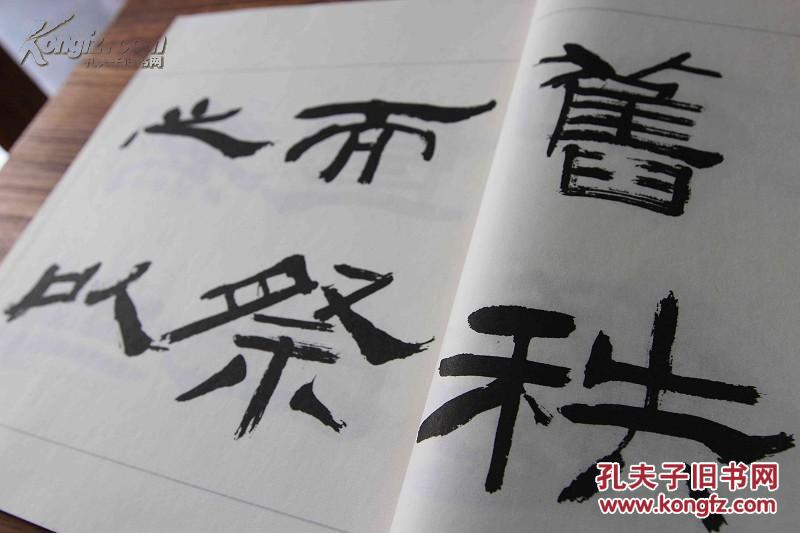 舊秩
而祭
之以
Kongfz.com
孔夫子旧书网
孔夫子旧书网
www.kongfz.com